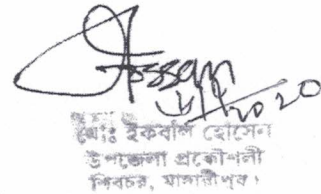 Hossain
মোঃ ইকবাল হোসেন
উপজেলা প্রকৌশলী
শিবচর, মাদারীপুর।